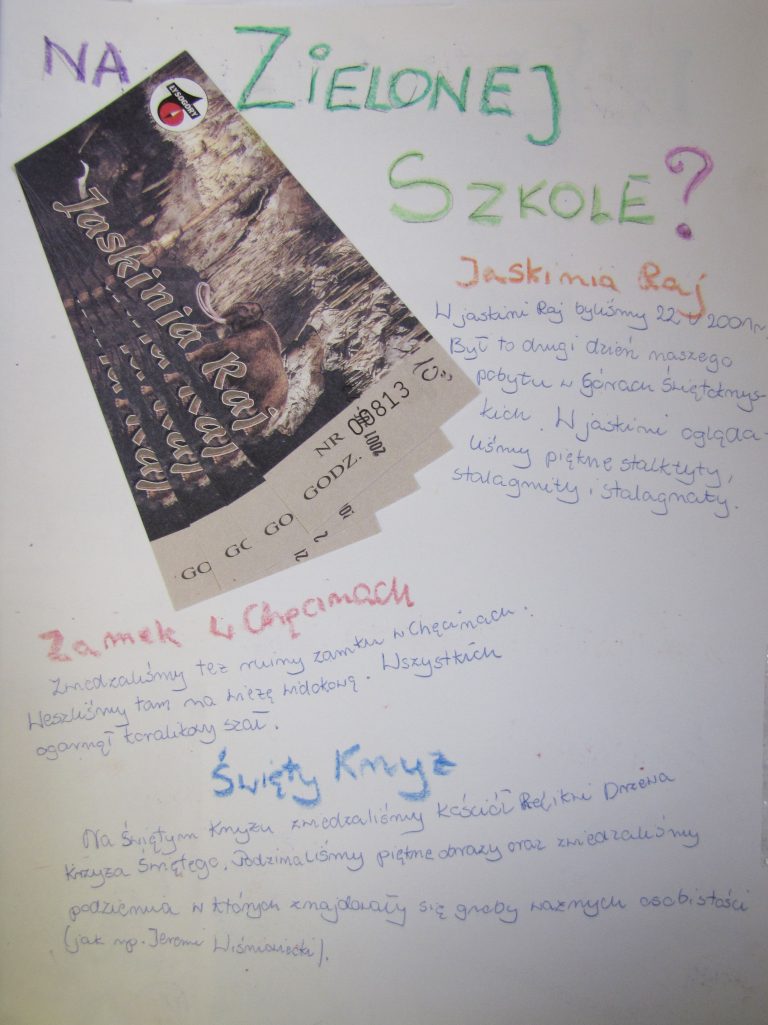 NA ZIELONEJ
SZKOLE?
ŁYSOGÓRY
Jaskinia Raj
NR 09813
GODZ.
GO
GO
GO
Jaskinia Raj
W jaskini Raj byliśmy 22 V 2001r.
Był to drugi dzień naszego
pobytu w Górach Świętokrzys-
kich. W jaskini ogląda-
liśmy piękne stalktyty,
stalagmity i stalagnaty.
Zamek w Chęcinach
Zwiedzaliśmy też ruiny zamku w Chęcinach.
Weszliśmy tam na wieżę widokową. Wszystkich
ogarnął koralikowy szał.
Święty Krzyż
Na Świętym Krzyżu zwiedzaliśmy kościół Relikwi Drzewa
Krzyża Świętego. Podziwialiśmy piękne obrazy oraz zwiedzaliśmy
podziemia w których znajdowały się groby ważnych osobistości
(jak np. Jeremi Wiśniowiecki).